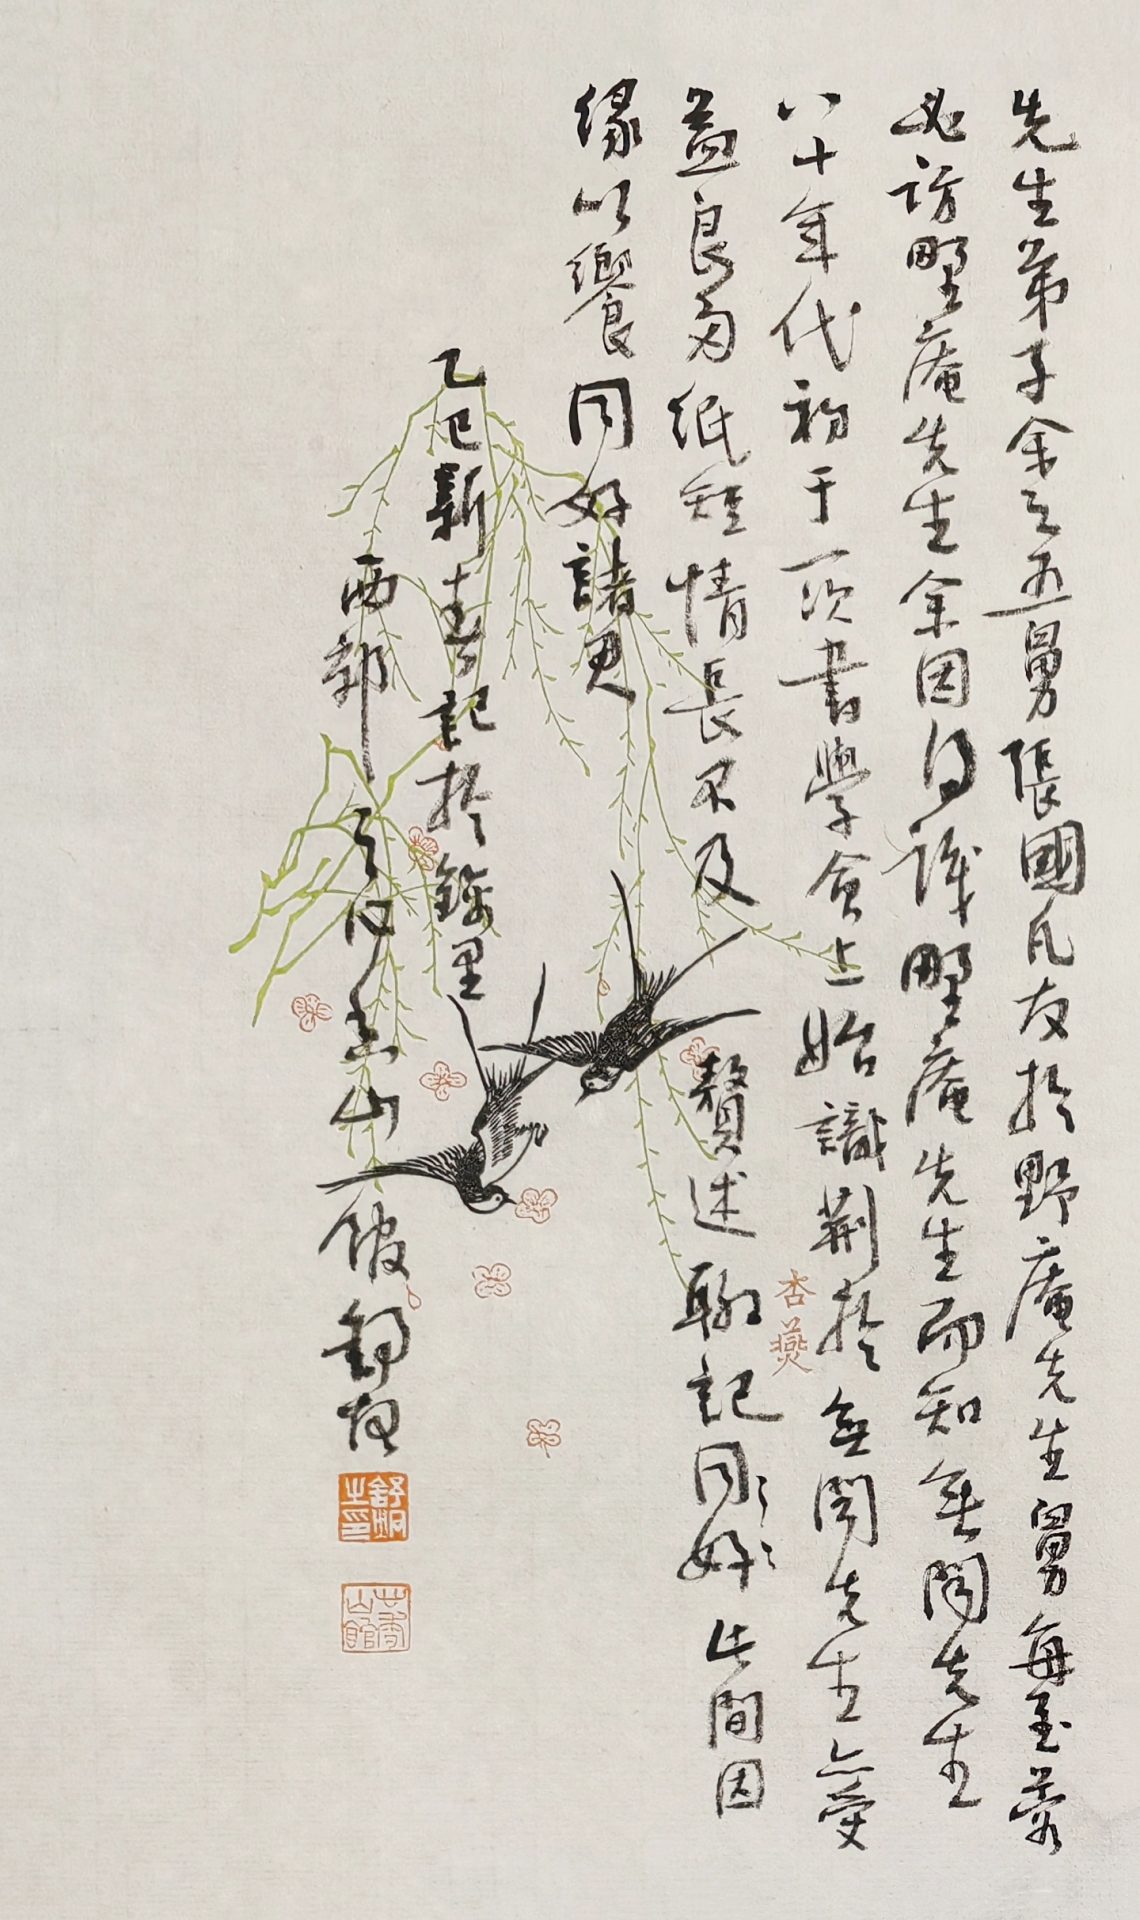 先生弟子余之五舅張國凡友於野庵先生舅每至蓉
必訪野庵先生余因得識野庵先生而知無悶先生
八十年代初于一次書學會上始識荆於無悶先生亦受
益良多紙短情長不及贅述聊記同好此間因
緣以饗同好諸君
乙巳新春記於錦里
西郊之芷香山館舒炯
杏燕
舒炯之印
芷香山館